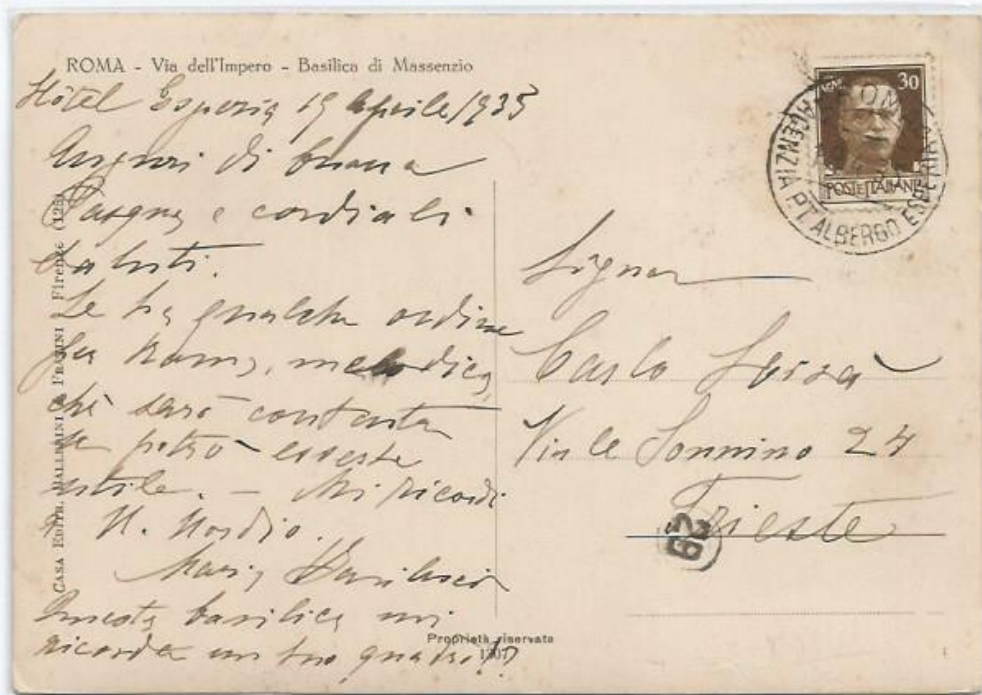 ROMA - Via dell'Impero - Basilica di Massenzio
Hôtel Esperia 19 Aprile 1935
Auguri di buona
Pasqua e cordiali
saluti.
Se ha qualche ordine
per Roma, me lo dica,
che sarò contenta
se potrò esserle
utile. - Mi ricordi
N. Nordio.
Maria
Questa basilica mi
ricorda un suo quadro!?
CASA EDITR. BALLERINI & FRATINI - Firenze (128)
Proprietà riservata
1307
30
POSTE ITALIANE
ROMA
AGENZIA P.T. ALBERGO ESPERIA
Signor
Carlo
Viale Sonnino 24
Trieste
29